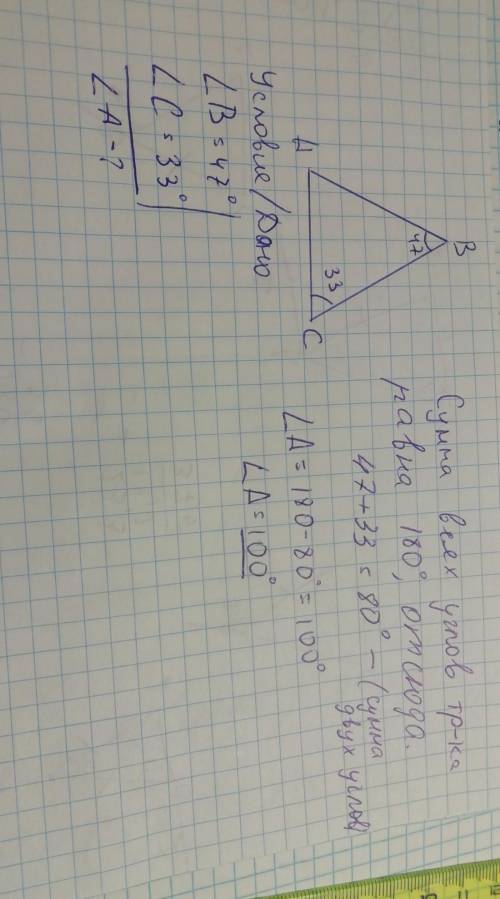 B
47
33
A
C
Условие/Дано
∠B = 47°
∠C = 33°
∠A - ?
Сумма всех углов тр-ка
равна 180°, отсюда.
47+33 = 80° – (сумма
двух углов)
∠A = 180-80° = 100°
∠A = 100°